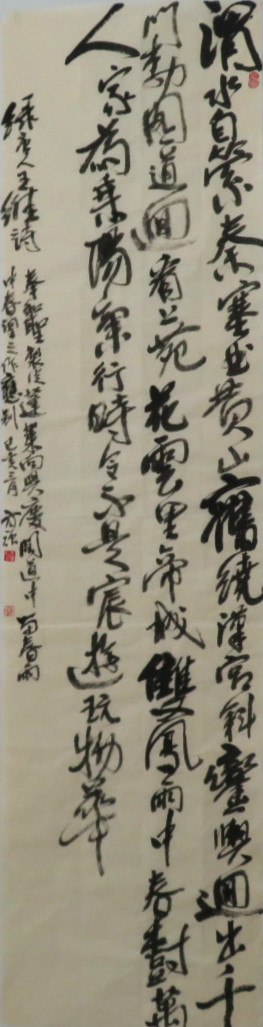 渭水自縈秦塞曲黃山舊繞漢宮斜鑾輿迴出千
門柳閣道迴看上苑花雲里帝城雙鳳雨中春樹萬
人家為乘陽氣行時令不是宸遊玩物華
錄唐人王維詩 奉和聖製從蓬萊向興慶閣道中留春雨
中春望之作應制 己亥